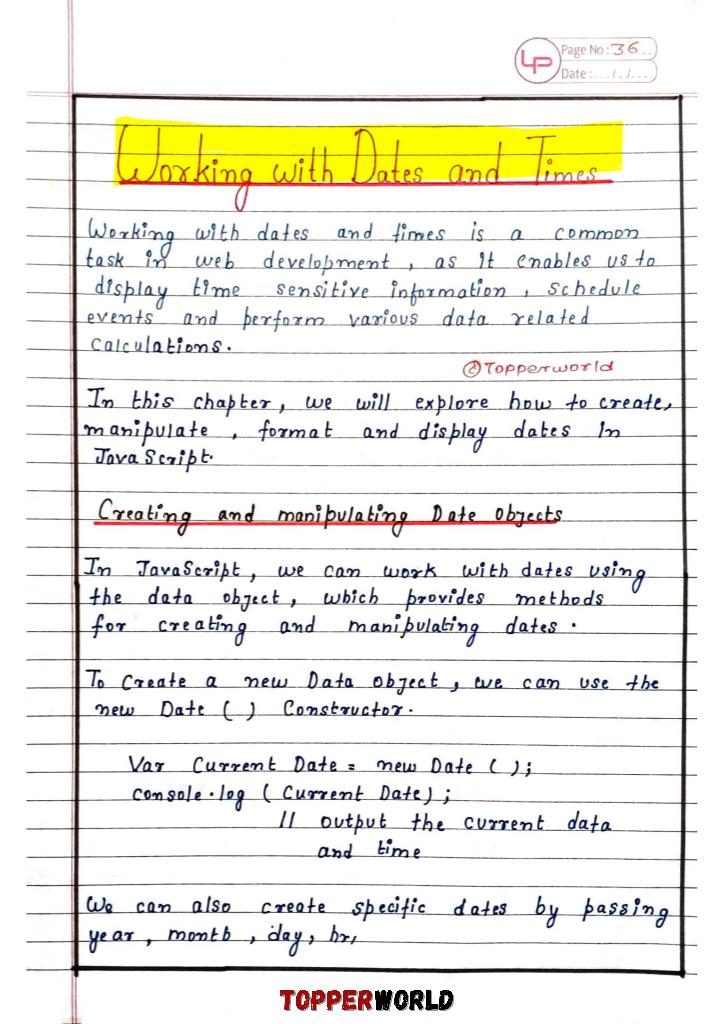 LP
Page No: 36...
Date: ... / . / ....
Working with Dates and Times
Working with dates and times is a common
task in web development, as it enables us to
display time sensitive information, schedule
events and perform various data related
calculations.
@Topperworld
In this chapter, we will explore how to create,
manipulate, format and display dates in
JavaScript.
Creating and manipulating Date Objects
In JavaScript, we can work with dates using
the data object, which provides methods
for creating and manipulating dates.
To Create a new Data object, we can use the
new Date ( ) Constructor.
Var Current Date = new Date ( );
console.log ( Current Date) ;
// output the current data
and time
We can also create specific dates by passing
year, month, day, hr,
TOPPERWORLD